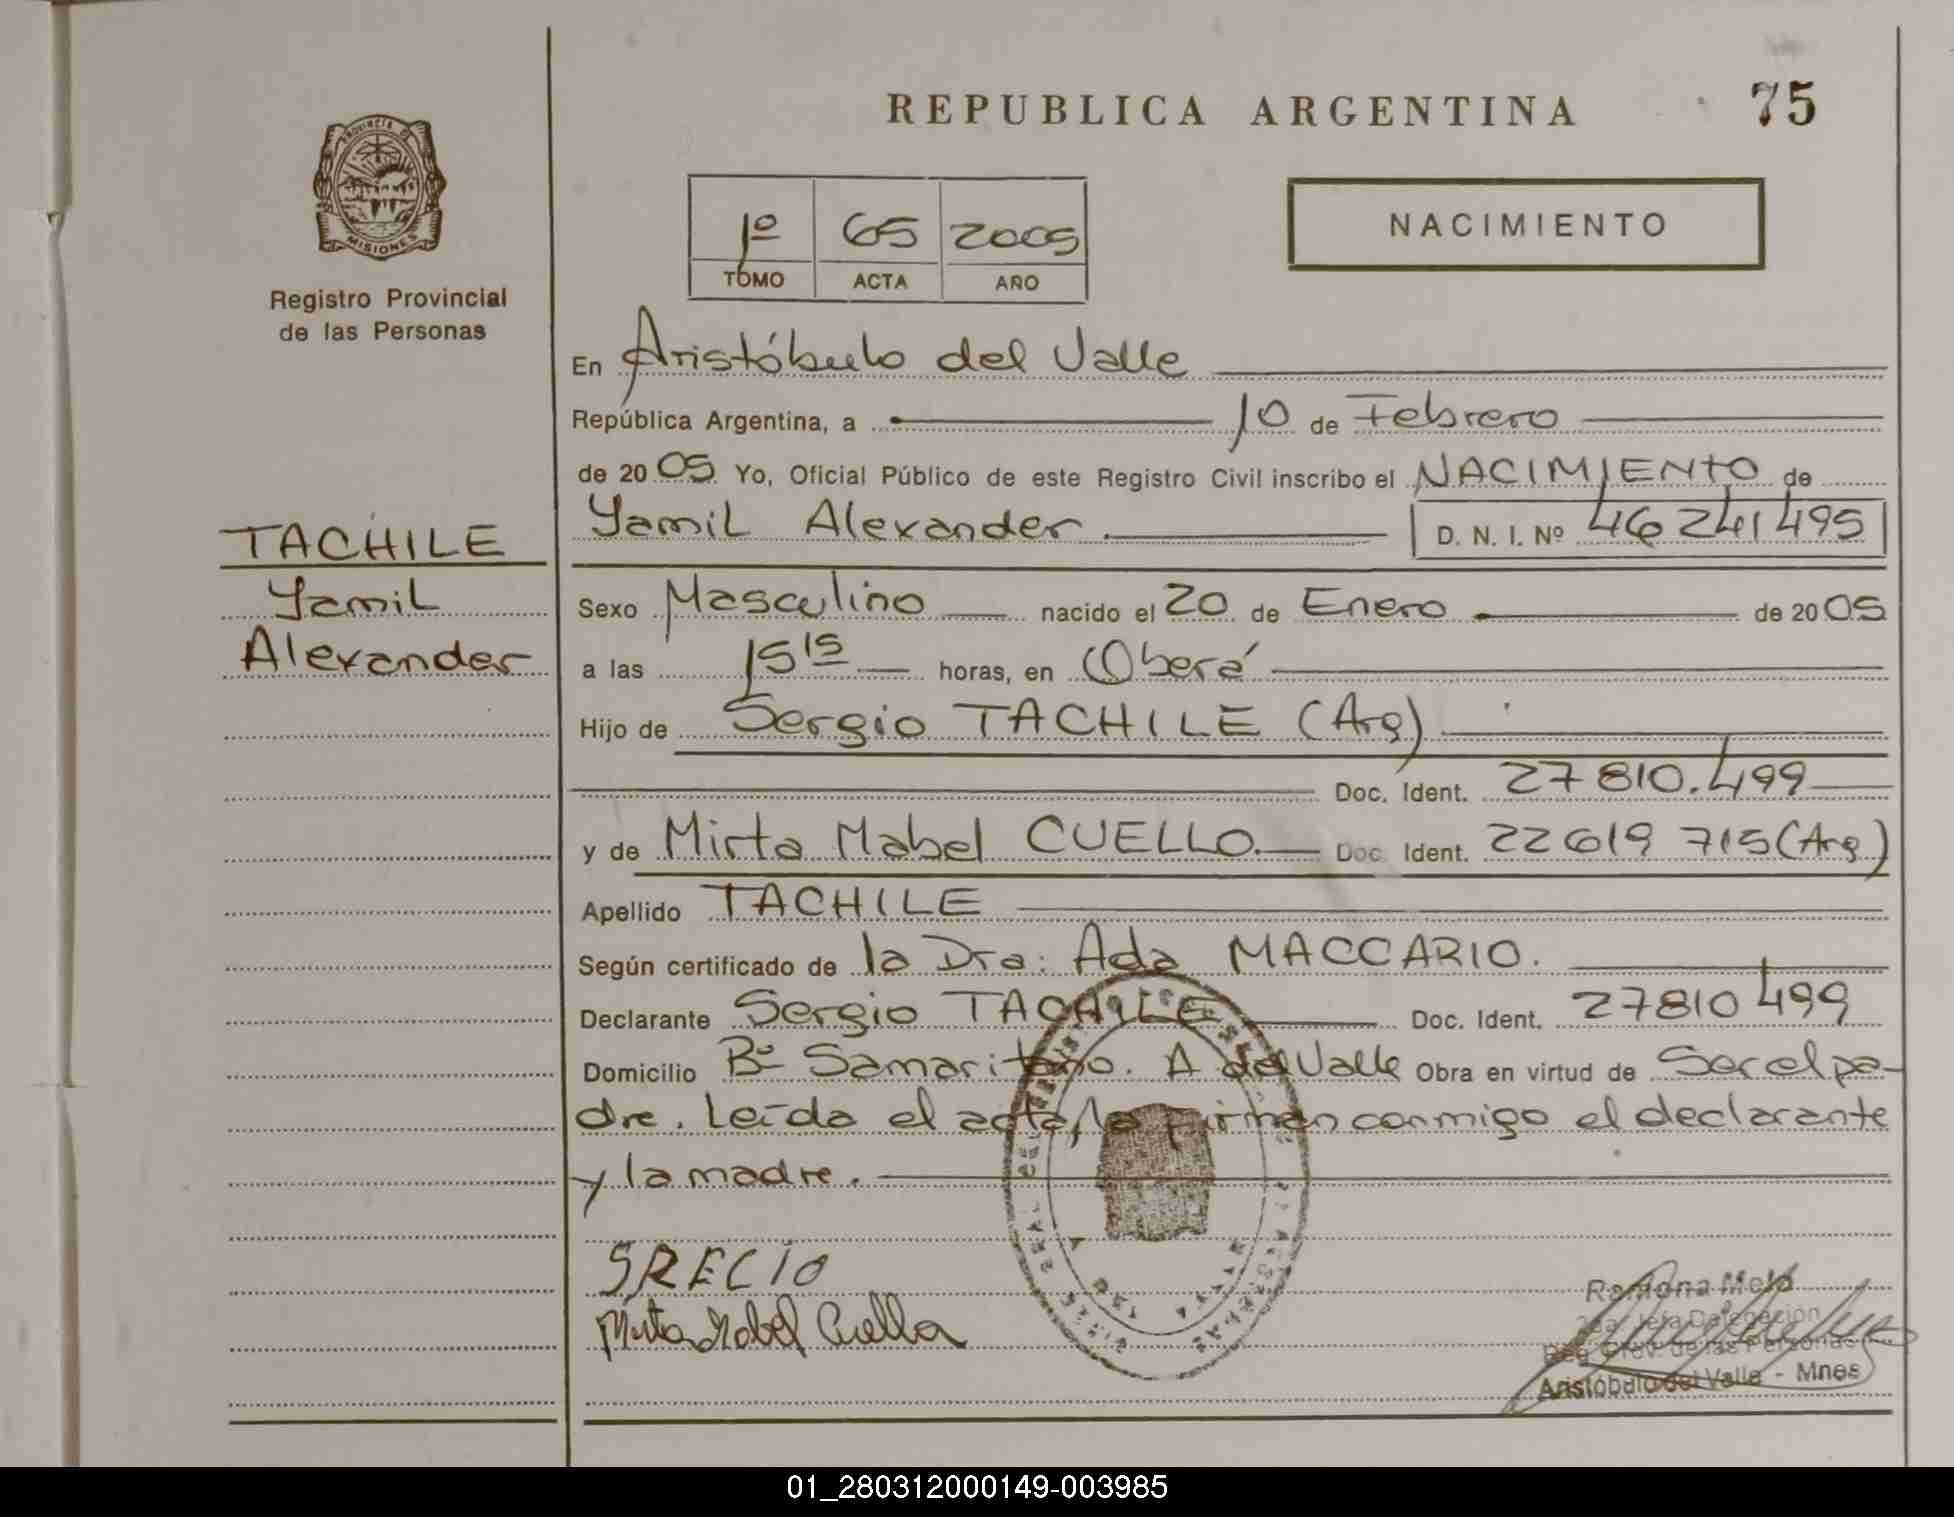 REPUBLICA ARGENTINA
75
PROVINCIA DE
MISIONES
Registro Provincial
de las Personas
1º 65 2005
TOMO ACTA AÑO
NACIMIENTO
En Aristóbulo del Valle
República Argentina, a 10 de Febrero
de 2005 Yo, Oficial Público de este Registro Civil inscribo el NACIMIENTO de
Yamil Alexander. D. N. I. Nº 46241495
TACHILE
Yamil
Alexander
Sexo Masculino nacido el 20 de Enero de 2005
a las 15 15 horas, en Oberá
Hijo de Sergio TACHILE (Arg)
Doc. Ident. 27810.499
y de Mirta Mabel CUELLO. Doc. Ident. 22619 715 (Arg)
Apellido TACHILE
Según certificado de la Dra: Ada MACCARIO.
Declarante Sergio TACHILE Doc. Ident. 27810499
Domicilio Bº Samaritano. A del Valle Obra en virtud de Ser el pa-
dre. Leída el acta, la firman conmigo el declarante
y la madre.
SRECIO
Mirta Mabel Cuello
A DEL VALLE
Ramona Melo
Jefa Delegación
Reg Prov. de las Personas
Aristóbulo del Valle - Mnes
01_280312000149-003985